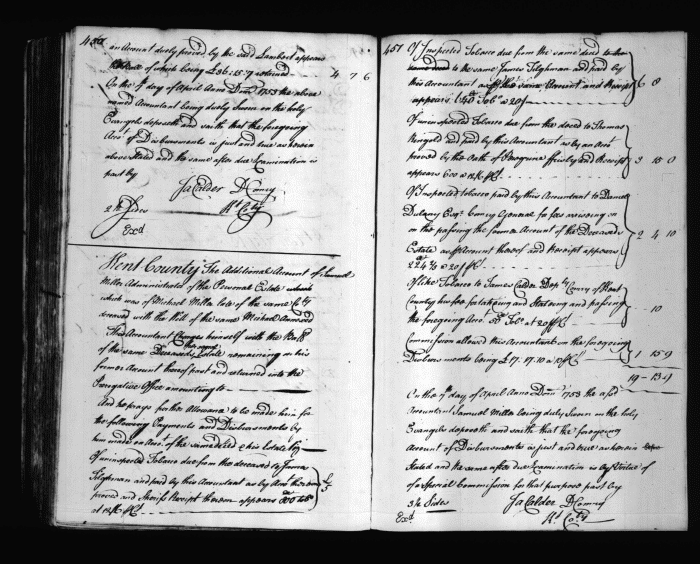 450
an Account duely proved by the said Lambert appears
of which being £36:15:7 returned 4 7 6
On the 4th day of April Anno Dom 1753 the above
named Accountant being duely Sworn on the holy
Evangels deposeth and saith that the foregoing
Acct of Disbursements is just and true as herein
above stated and the same after due Examination is
past by
Ja Calder DComry
2 Sides Kt Coty
Exd
Kent County The Additional Account of Samuel
Miller Administrator of the Personal Estate which
which was of Michael Miller late of the same Coty
deceased with the Will of the same Michael Annexed
This Accountant Charges himself with the Balla
of the same Deceaseds Estate remaining on his
former Account thereof past and returned into the
Prerogative Office amounting to
And he prays for the Allowance to be made him for
the following Payments and Disbursements by
him made on Acct of the same decd & his Estate Viz
Of uninspected Tobacco due from the deceased to James
Tilghman and paid by this Accountant as by Acct thereon
proved and Sheriffs Receipt thereon appears
at 12/6 pCt
451
Of Inspected Tobacco due from the same decd to the
same decd to the same James Tilghman and paid by
this Accountant as p the same Account and Receipt 6 8
appears 640 Tobo a 20/
Of uninspected Tobacco due from the decd to Thomas
Ringold and paid by this Accountant as by an Acct
proved by the Oath of Peregrine Frisby and Receipt 3 15 0
appears 600 a 12/6 pCt
Of Inspected tobacco paid by this Accountant to Daniel
Dulany Esqr Comry General for fees arising on
on the passing the former Account of the Deceaseds 2 4 10
Estate as p Account thereof and Receipt appears
224 ¼ a 20/ pCt
Of like Tobacco to James Calder Depty Comry of Kent
County his fee for stating and passing 10
the foregoing Acct 50 Tobo at 20/ pCt
Commission allowed this Accountant on the foregoing
Disbursements being £17.17.10 a 10 pCt 1 15 9
19 - 13 9
On the 4th day of April Anno Dom 1753 the afd
Accountant Samuel Miller being duly Sworn on the holy
Evangels deposeth and saith that the foregoing
Account of Disbursements is just and true as herein
Stated and the same after due Examination is by Virtue of
of a Special Commission for that purpose past by
3½ Sides Ja Calder DComry
Exd Kt Coty